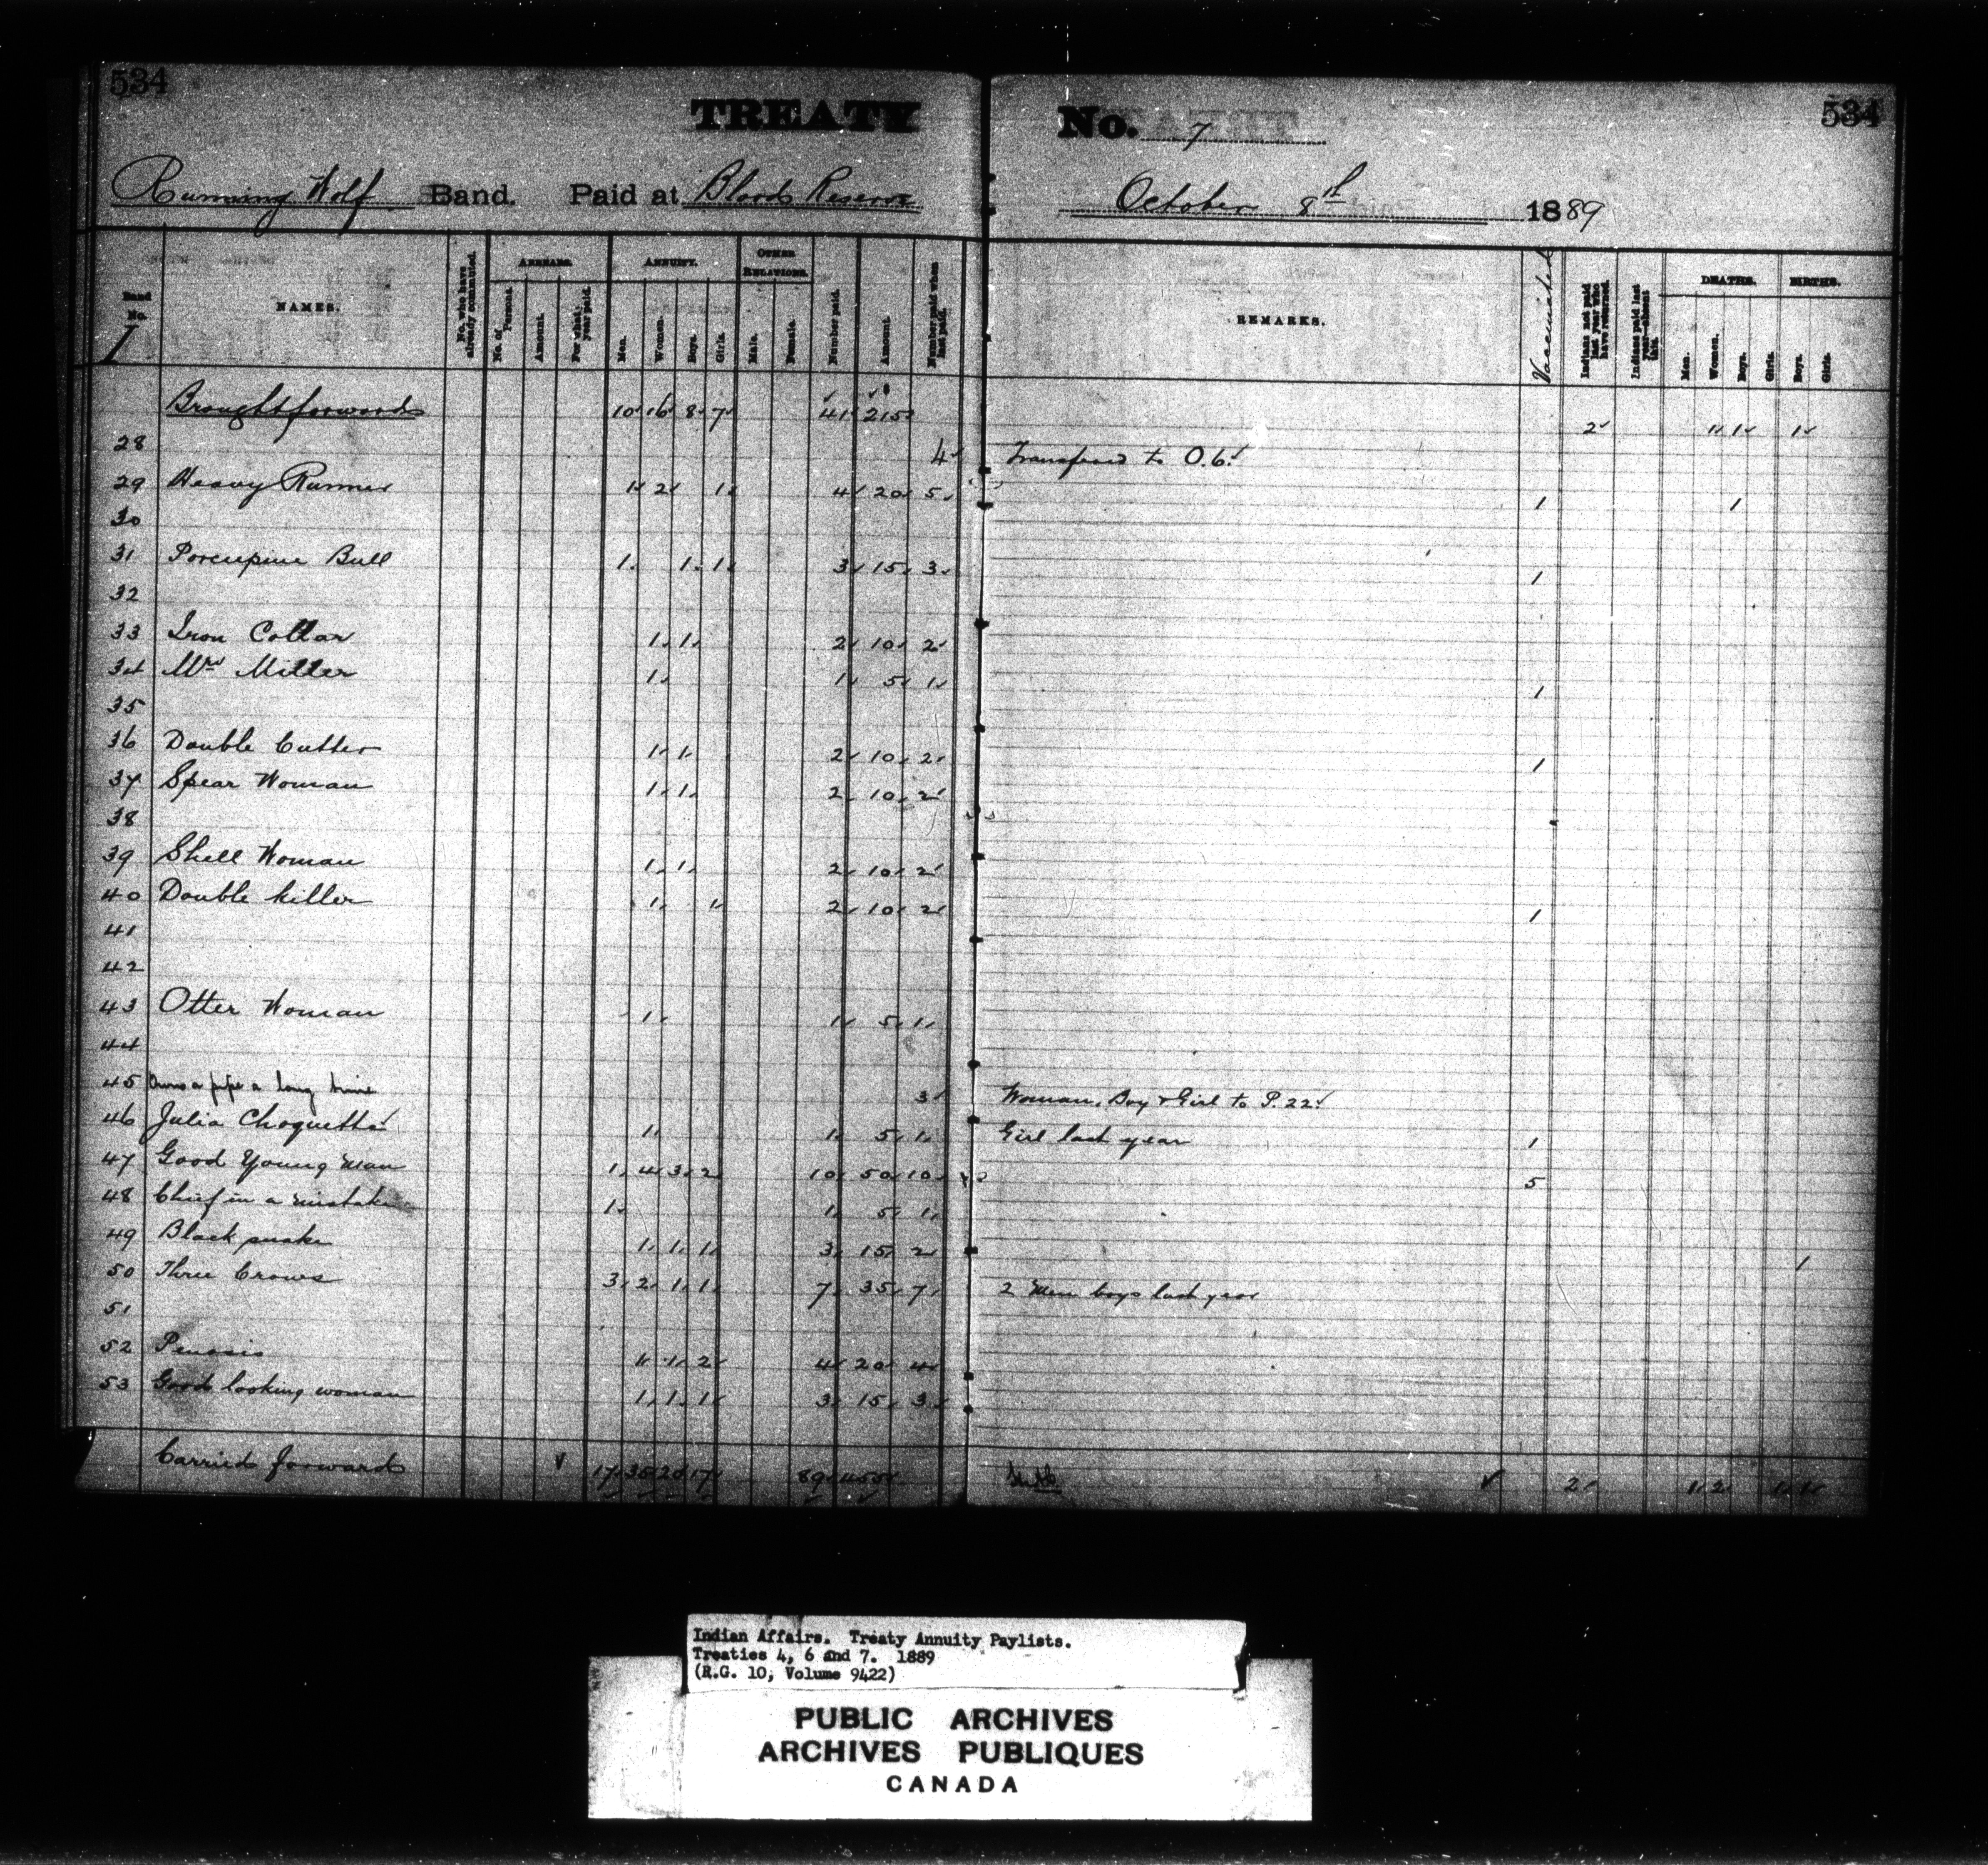 534
534
TREATY No. 7
Running Wolf Band. Paid at Blood Reserve October 8th 1889
Band No. NAMES. No. who have already commuted. ARREARS. ANNUITY. OTHER RELATIONS. Number paid. Amount. Number paid when last paid. REMARKS. Vaccinated Indians not paid last year who have returned. Indians paid last year—absent this. DEATHS. BIRTHS.
I No. of Parent. Amount. For what year paid. Men. Women. Boys. Girls. Male. Female. Men. Women. Boys. Girls. Boys. Girls.
Brought forward 10 16 8 7 41 215 2 1 1 1
28 4 Transferred to O.6.
29 Heavy Runner 1 2 1 4 20 5 1 1
30
31 Porcupine Bull 1 1 1 3 15 3 1
32
33 Iron Collar 1 1 2 10 2
34 Mrs Miller 1 1 5 1 1
35
36 Double Cutter 1 1 2 10 2 1
37 Spear Woman 1 1 2 10 2
38
39 Shell Woman 1 1 2 10 2
40 Double killer 1 1 2 10 2 1
41
42
43 Otter Woman 1 1 5 1
44
45 Owns a pipe a long time 3 Woman, Boy & Girl to P.22.
46 Julia Choquette 1 1 5 1 Girl last year 1
47 Good Young Man 1 4 3 2 10 50 10 5
48 Chief in a mistake 1 1 5 1
49 Black snake 1 1 1 3 15 2 1
50 Three Crows 3 2 1 1 7 35 7 2 Men boys last year
51
52 1 1 2 4 20 4
53 Good looking woman 1 1 1 3 15 3
Carried forward 17 35 20 17 89 455 2 1 2 1 1
Indian Affairs. Treaty Annuity Paylists.
Treaties 4, 6 and 7. 1889
(R.G. 10, Volume 9422)
PUBLIC ARCHIVES
ARCHIVES PUBLIQUES
CANADA